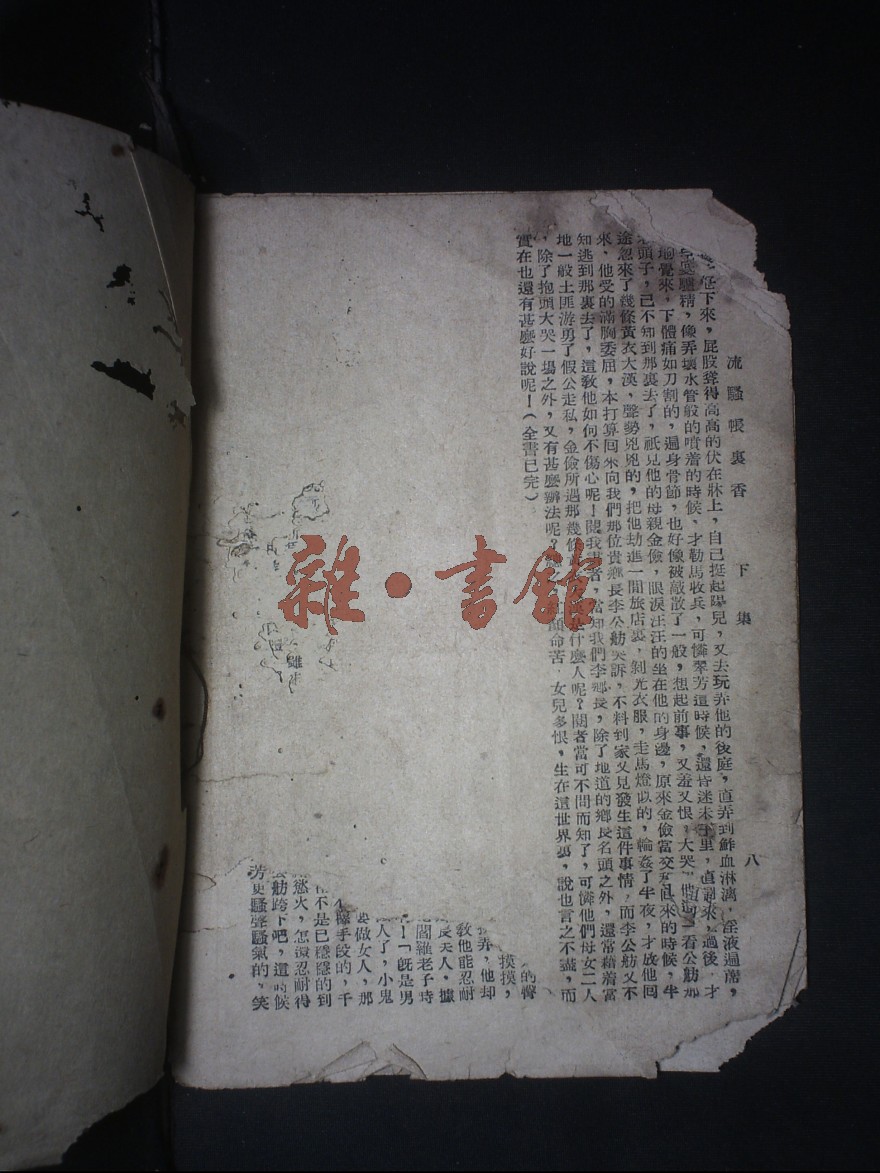 流騷帳裏香　下集　八
低下來，屁股聳得高高的伏在牀上，自己挺起陽兒，又去玩弄他的後庭，直弄到鮮血淋漓，淫液過
精，像弄壞水管般的噴着的時候，才勒馬收兵，可憐翠芳這時候，還昏迷未，過後，才
覺來，下體痛如刀割的，遍身骨節，也好像被敲散了一般，想起前事，又羞又恨，大哭看公舫那
頭子，已不知到那裏去了，祇見他的母親金儉，眼淚汪汪的坐在他的身邊，原來金儉當交回來的時候，半
途忽來了幾條黃衣大漢，聲勢兇兇的，把他劫進一間旅店裏，剝光衣服，走馬燈似的，輪姦了半夜，才放他囘
來，他受的滿胸委屈，本打算囘來向我們那位貴鄉長李公舫哭訴，不料到家又見發生這件事情，而李公舫又不
知逃到那裏去了，這敎他如何不傷心呢！閱我書者，當知我們李鄉長，除了地道的鄉長名頭之外，還常藉着當
地一般土匪游勇了假公走私，金儉所遇那幾條什麼人呢？閱者當可不問而知了，可憐他們母女二人
，除了抱頭大哭一塲之外，又有甚麼辦法呢？命苦，女兒多恨，生在這世界裏，說也言之不盡，而
實在也還有甚麼好說呢！（全書已完）
的臀
摸摸，
弄，他却
敎他能忍耐
長天人，據
閻羅老子時
！「旣是男
人了，小鬼
要做女人，那
擇手段的，千
不是已隱隱的到
慾火，怎還忍耐得
舫跨下吧，這時候
芳更騷聲騷氣的，笑
雜·書館